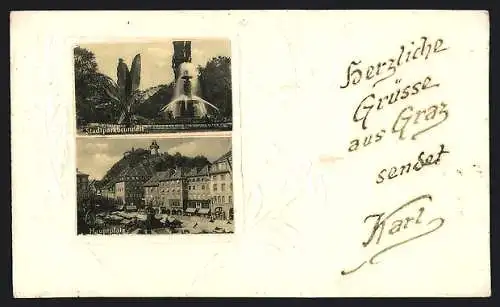 Stadtparkbrunnen
Hauptplatz
Herzliche
Grüsse
aus Graz
sendet
Karl